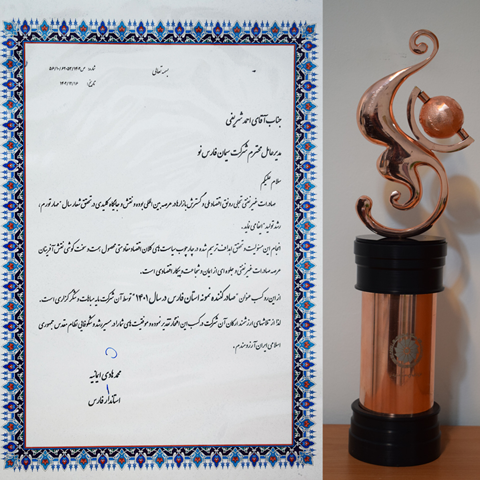 بسمه تعالی
شماره:
تاریخ:
جناب آقای احمد شریفی
مدیرعامل محترم شرکت سیمان فارس نو
سلام علیکم
صادرات غیرنفتی تجلی رونق اقتصاد ملی و گسترش بازارها در عرصه بین المللی بوده و نقش و جایگاه کلیدی در تحقق شعار سال "مهار تورم،
رشد تولید" ایفا می نماید.
انجام این مسئولیت و تحقق اهداف ترسیم شده در چارچوب سیاست های کلان اقتصاد مقاومتی محصول همت و سخت کوشی نقش آفرینان
عرصه صادرات غیرنفتی و جلوه ای از ایمان و شجاعت و پیکار اقتصادی است.
از این رو کسب عنوان "صادرکننده نمونه استان فارس در سال ۱۴۰۱" توسط آن شرکت مایه مباهات و شکرگزاری است.
لذا از تلاشهای ارزشمند ارکان آن شرکت در کسب این افتخار تقدیر نموده و موفقیت های شما را در مسیر رشد و شکوفایی نظام مقدس جمهوری
اسلامی ایران آرزومندم.
محمد هادی ایمانیه
استاندار فارس